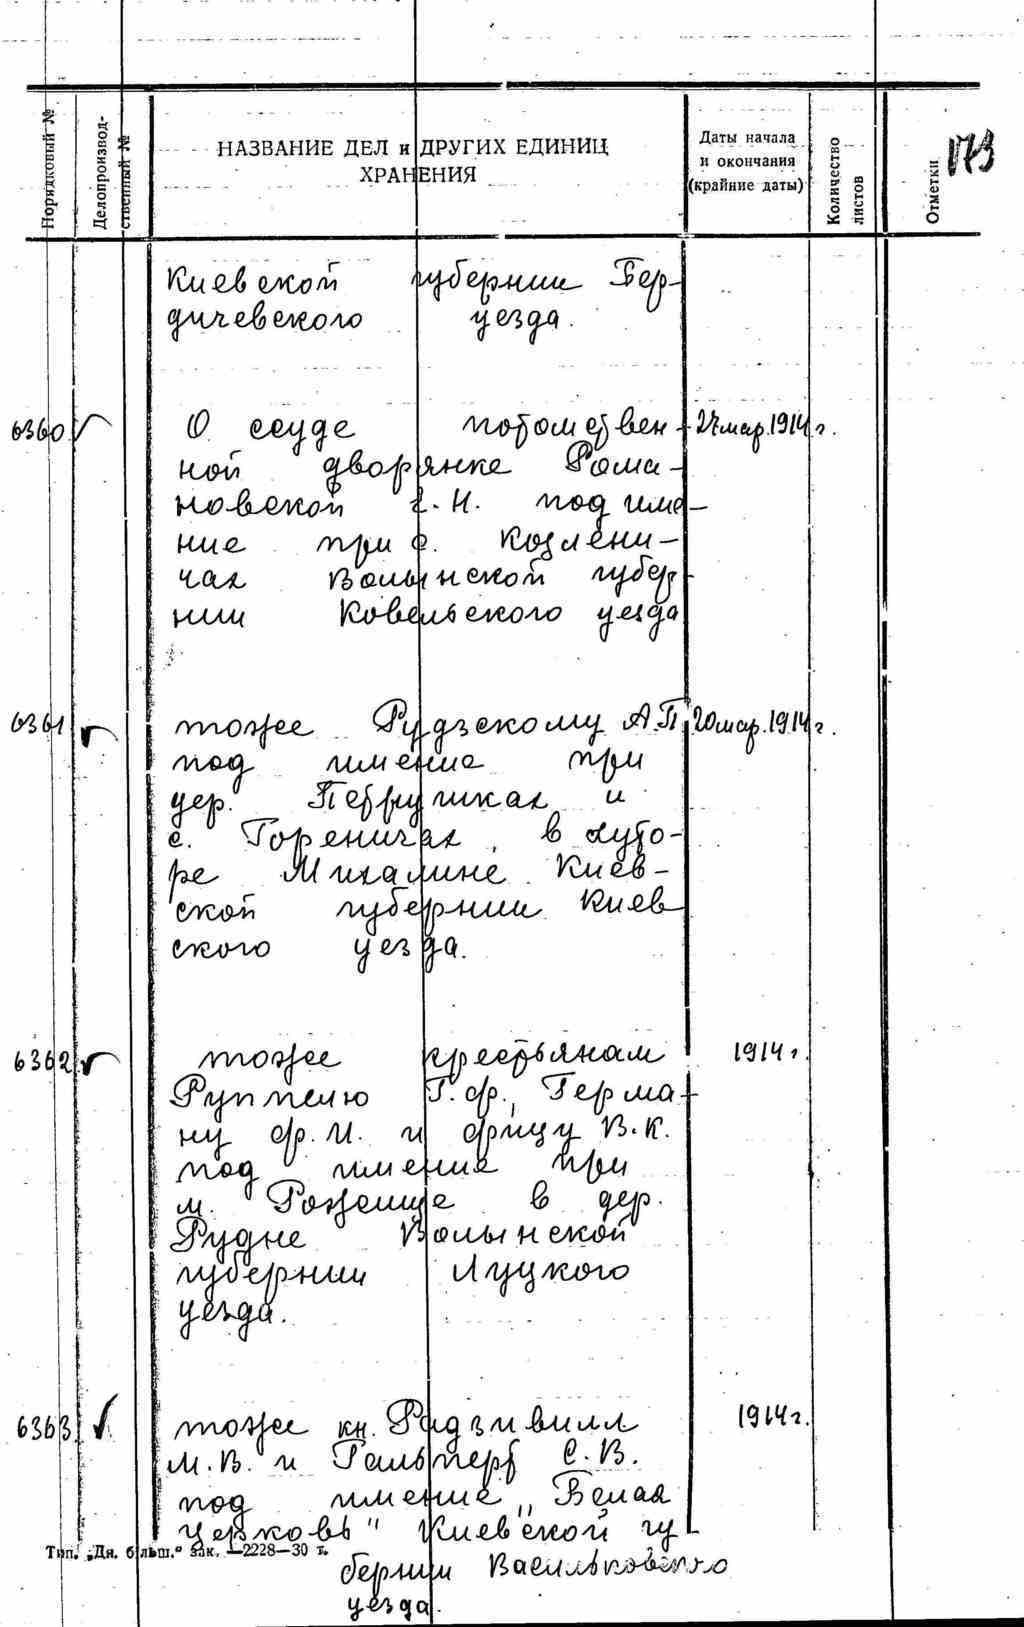 Порядковый №
Делопроизвод-
ственный №
НАЗВАНИЕ ДЕЛ и ДРУГИХ ЕДИНИЦ
ХРАНЕНИЯ
Даты начала
и окончания
(крайние даты)
Количество
листов
Отметки
173
Киевской губернии Бер-
дичевского уезда.
6360 О ссуде потомствен- 24 мар. 1914 г.
ной дворянке Рома-
новской Е. Н. под име-
ние при с. Козлени-
чах Волынской губер-
нии Ковельского уезда
6361 тоже Рудзскому А.П. 20 мар. 1914 г.
под имение при
дер. Петрушках и
с. Гореничах, в хуто-
ре Михалине Киев-
ской губернии Киев
ского уезда.
6362 тоже крестьянам 1914 г.
Руппелю Г.Ф., Герма-
ну Ф.И. и Фрицу В.К.
под имение при
м. Рожеще в дер.
Рудне Волынской
губернии Луцкого
уезда.
6363 тоже кн. Радзивилл 1914 г.
М.В. и Гальперт С.В.
под имение „Белая
Церковь" Киевской гу-
Тип. „Дн. больш.“ зак. —2228—30 т.
бернии Васильковского
уезда.